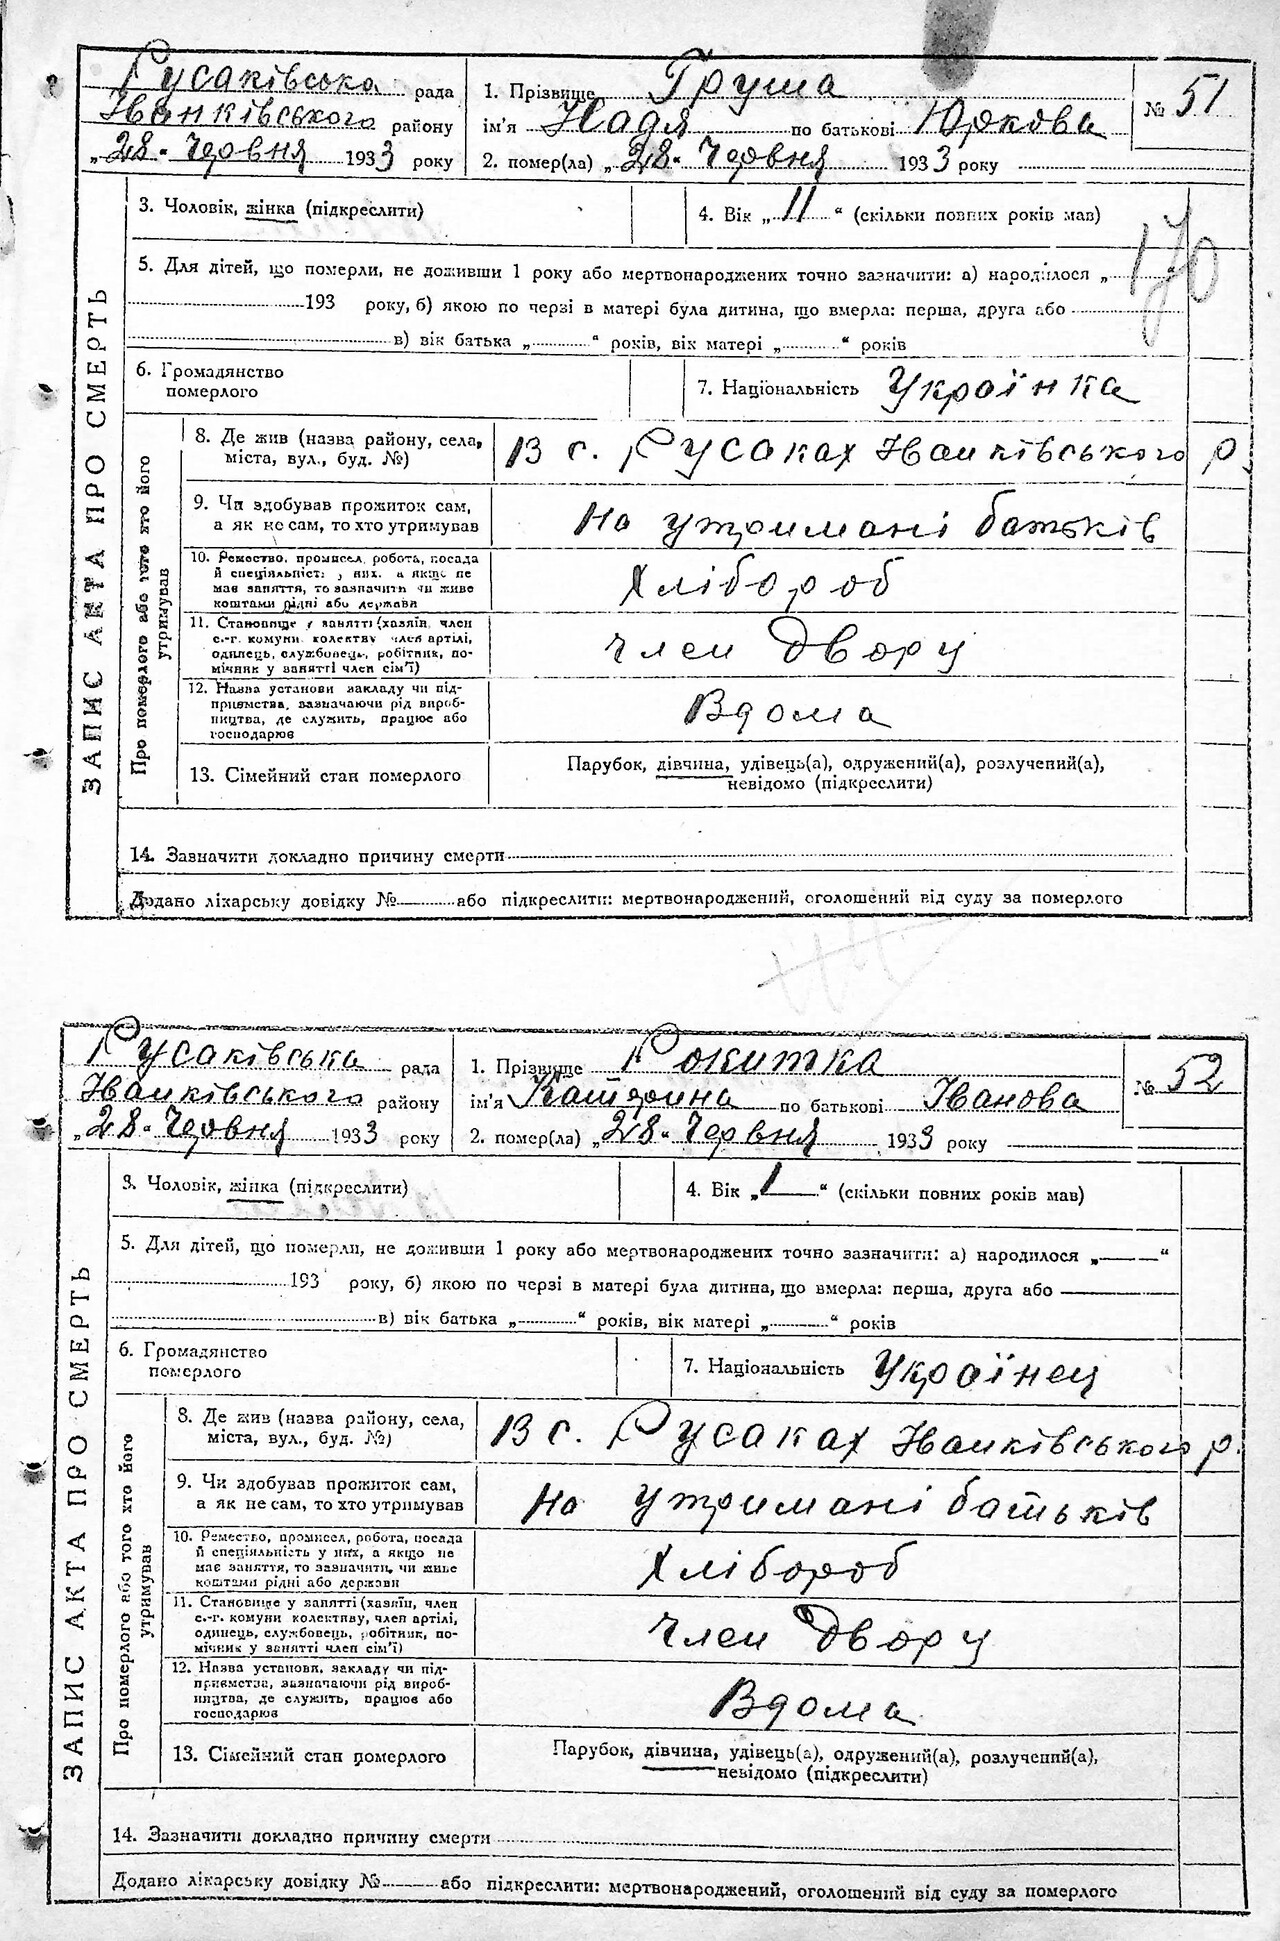 Русаківська рада
Іванківського району
„28“ Червня 1933 року
1. Прізвище Груша
ім'я Надя по батькові Юркова
2. помер(ла) „28“ Червня 1933 року
№ 51
3. Чоловік, жінка (підкреслити)
4. Вік „11“ (скільки повних років мав)
170
5. Для дітей, що померли, не доживши 1 року або мертвонароджених точно зазначити: а) народилося „
193 року, б) якою по черзі в матері була дитина, що вмерла: перша, друга або
в) вік батька „ “ років, вік матері „ “ років
6. Громадянство
померлого
7. Національність Українка
ЗАПИС АКТА ПРО СМЕРТЬ
Про померлого або того хто його
утримував
8. Де жив (назва району, села,
міста, вул., буд. №)
В с. Русаках Іванківського р.
9. Чи здобував прожиток сам,
а як не сам, то хто утримував
На утримані батьків
10. Ремество, промисел, робота, посада
й спеціяльність у них, а якщо не
має заняття, то зазначити чи живе
коштами рідні або держави
Хлібороб
11. Становище у занятті (хазяїн, член
с.-г. комуни, колективу член артілі,
одинець, службовець, робітник, по-
мічник у занятті член сім'ї)
член двору
12. Назва установи закладу чи під-
приємства, зазначаючи рід вироб-
ництва, де служить, працює або
господарює
Вдома
13. Сімейний стан померлого
Парубок, дівчина, удівець(а), одружений(а), розлучений(а),
невідомо (підкреслити)
14. Зазначити докладно причину смерти
Додано лікарську довідку № або підкреслити: мертвонароджений, оголошений від суду за померлого
Русаківська рада
Іванківського району
„28“ Червня 1933 року
1. Прізвище Рокитка
ім'я Катерина по батькові Іванова
2. помер(ла) „28“ Червня 1933 року
№ 52
3. Чоловік, жінка (підкреслити)
4. Вік „1“ (скільки повних років мав)
5. Для дітей, що померли, не доживши 1 року або мертвонароджених точно зазначити: а) народилося „ “
193 року, б) якою по черзі в матері була дитина, що вмерла: перша, друга або
в) вік батька „ “ років, вік матері „ “ років
6. Громадянство
померлого
7. Національність Українец
ЗАПИС АКТА ПРО СМЕРТЬ
Про померлого або того хто його
утримував
8. Де жив (назва району, села,
міста, вул., буд. №)
В с. Русаках Іванківського р.
9. Чи здобував прожиток сам,
а як не сам, то хто утримував
На утримані батьків
10. Ремество, промисел, робота, посада
й спеціяльність у них, а якщо не
має заняття, то зазначити, чи живе
коштами рідні або держави
Хлібороб
11. Становище у занятті (хазяїн, член
с.-г. комуни колективу, член артілі,
одинець, службовець, робітник, по-
мічник у занятті член сім'ї)
член двору
12. Назва установи, закладу чи під-
приємства, зазначаючи рід вироб-
ництва, де служить, працює або
господарює
Вдома
13. Сімейний стан померлого
Парубок, дівчина, удівець(а), одружений(а), розлучений(а),
невідомо (підкреслити)
14. Зазначити докладно причину смерти
Додано лікарську довідку № або підкреслити: мертвонароджений, оголошений від суду за померлого